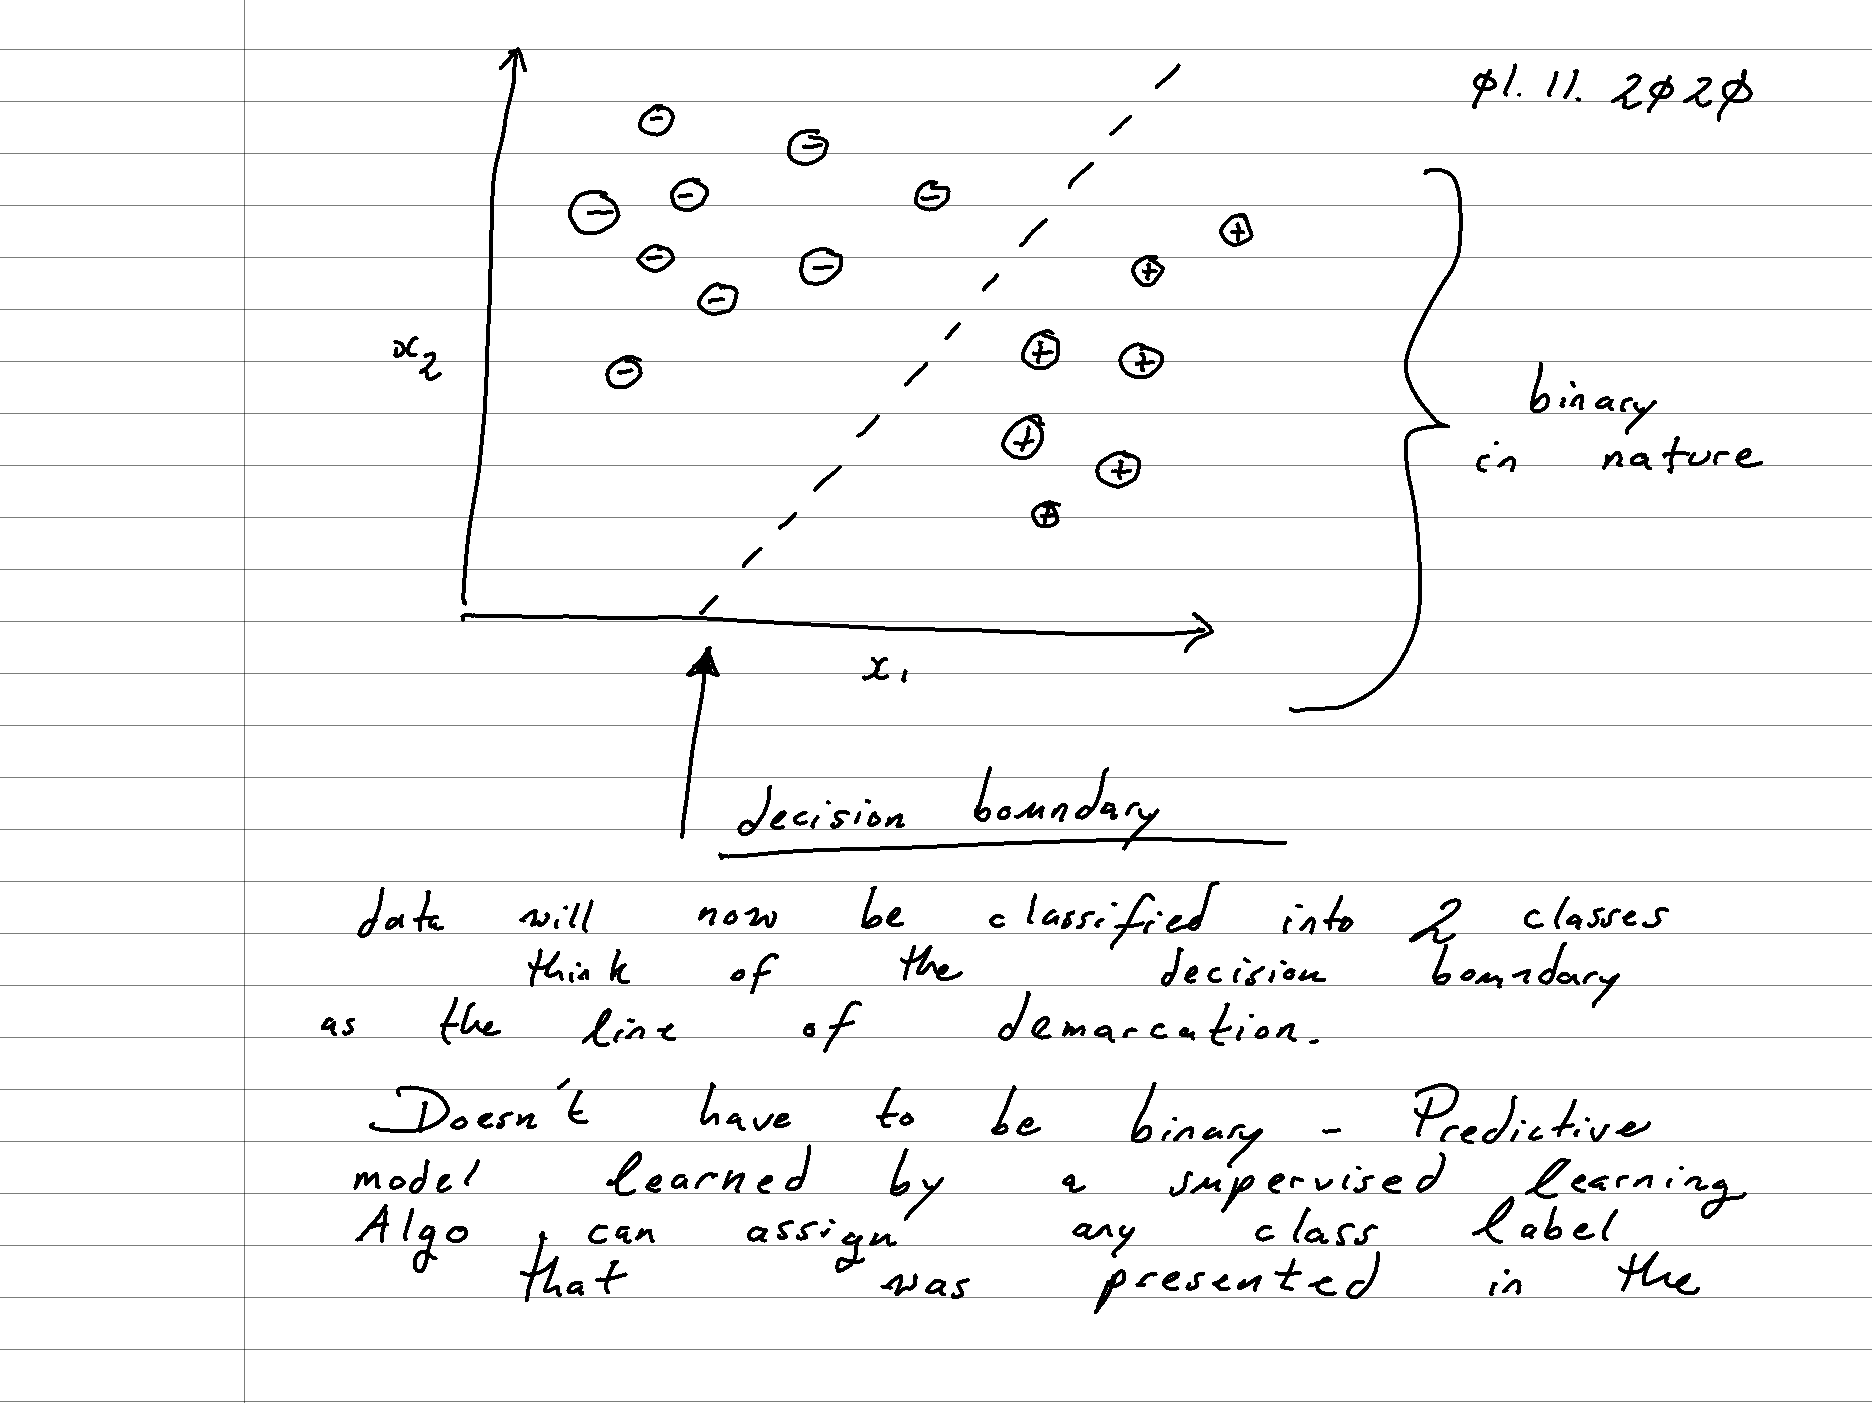 01.11.2020
⊖
⊖
⊖ ⊖ ⊖
⊕
⊖ ⊖ ⊕
⊖
x₂ ⊖ ⊕ ⊕
binary
in nature
⊕
⊕
⊕
x₁
decision boundary
data will now be classified into 2 classes
think of the decision boundary
as the line of demarcation.
Doesn't have to be binary - Predictive
model learned by a supervised learning
Algo, can assign any class label
that was presented in the